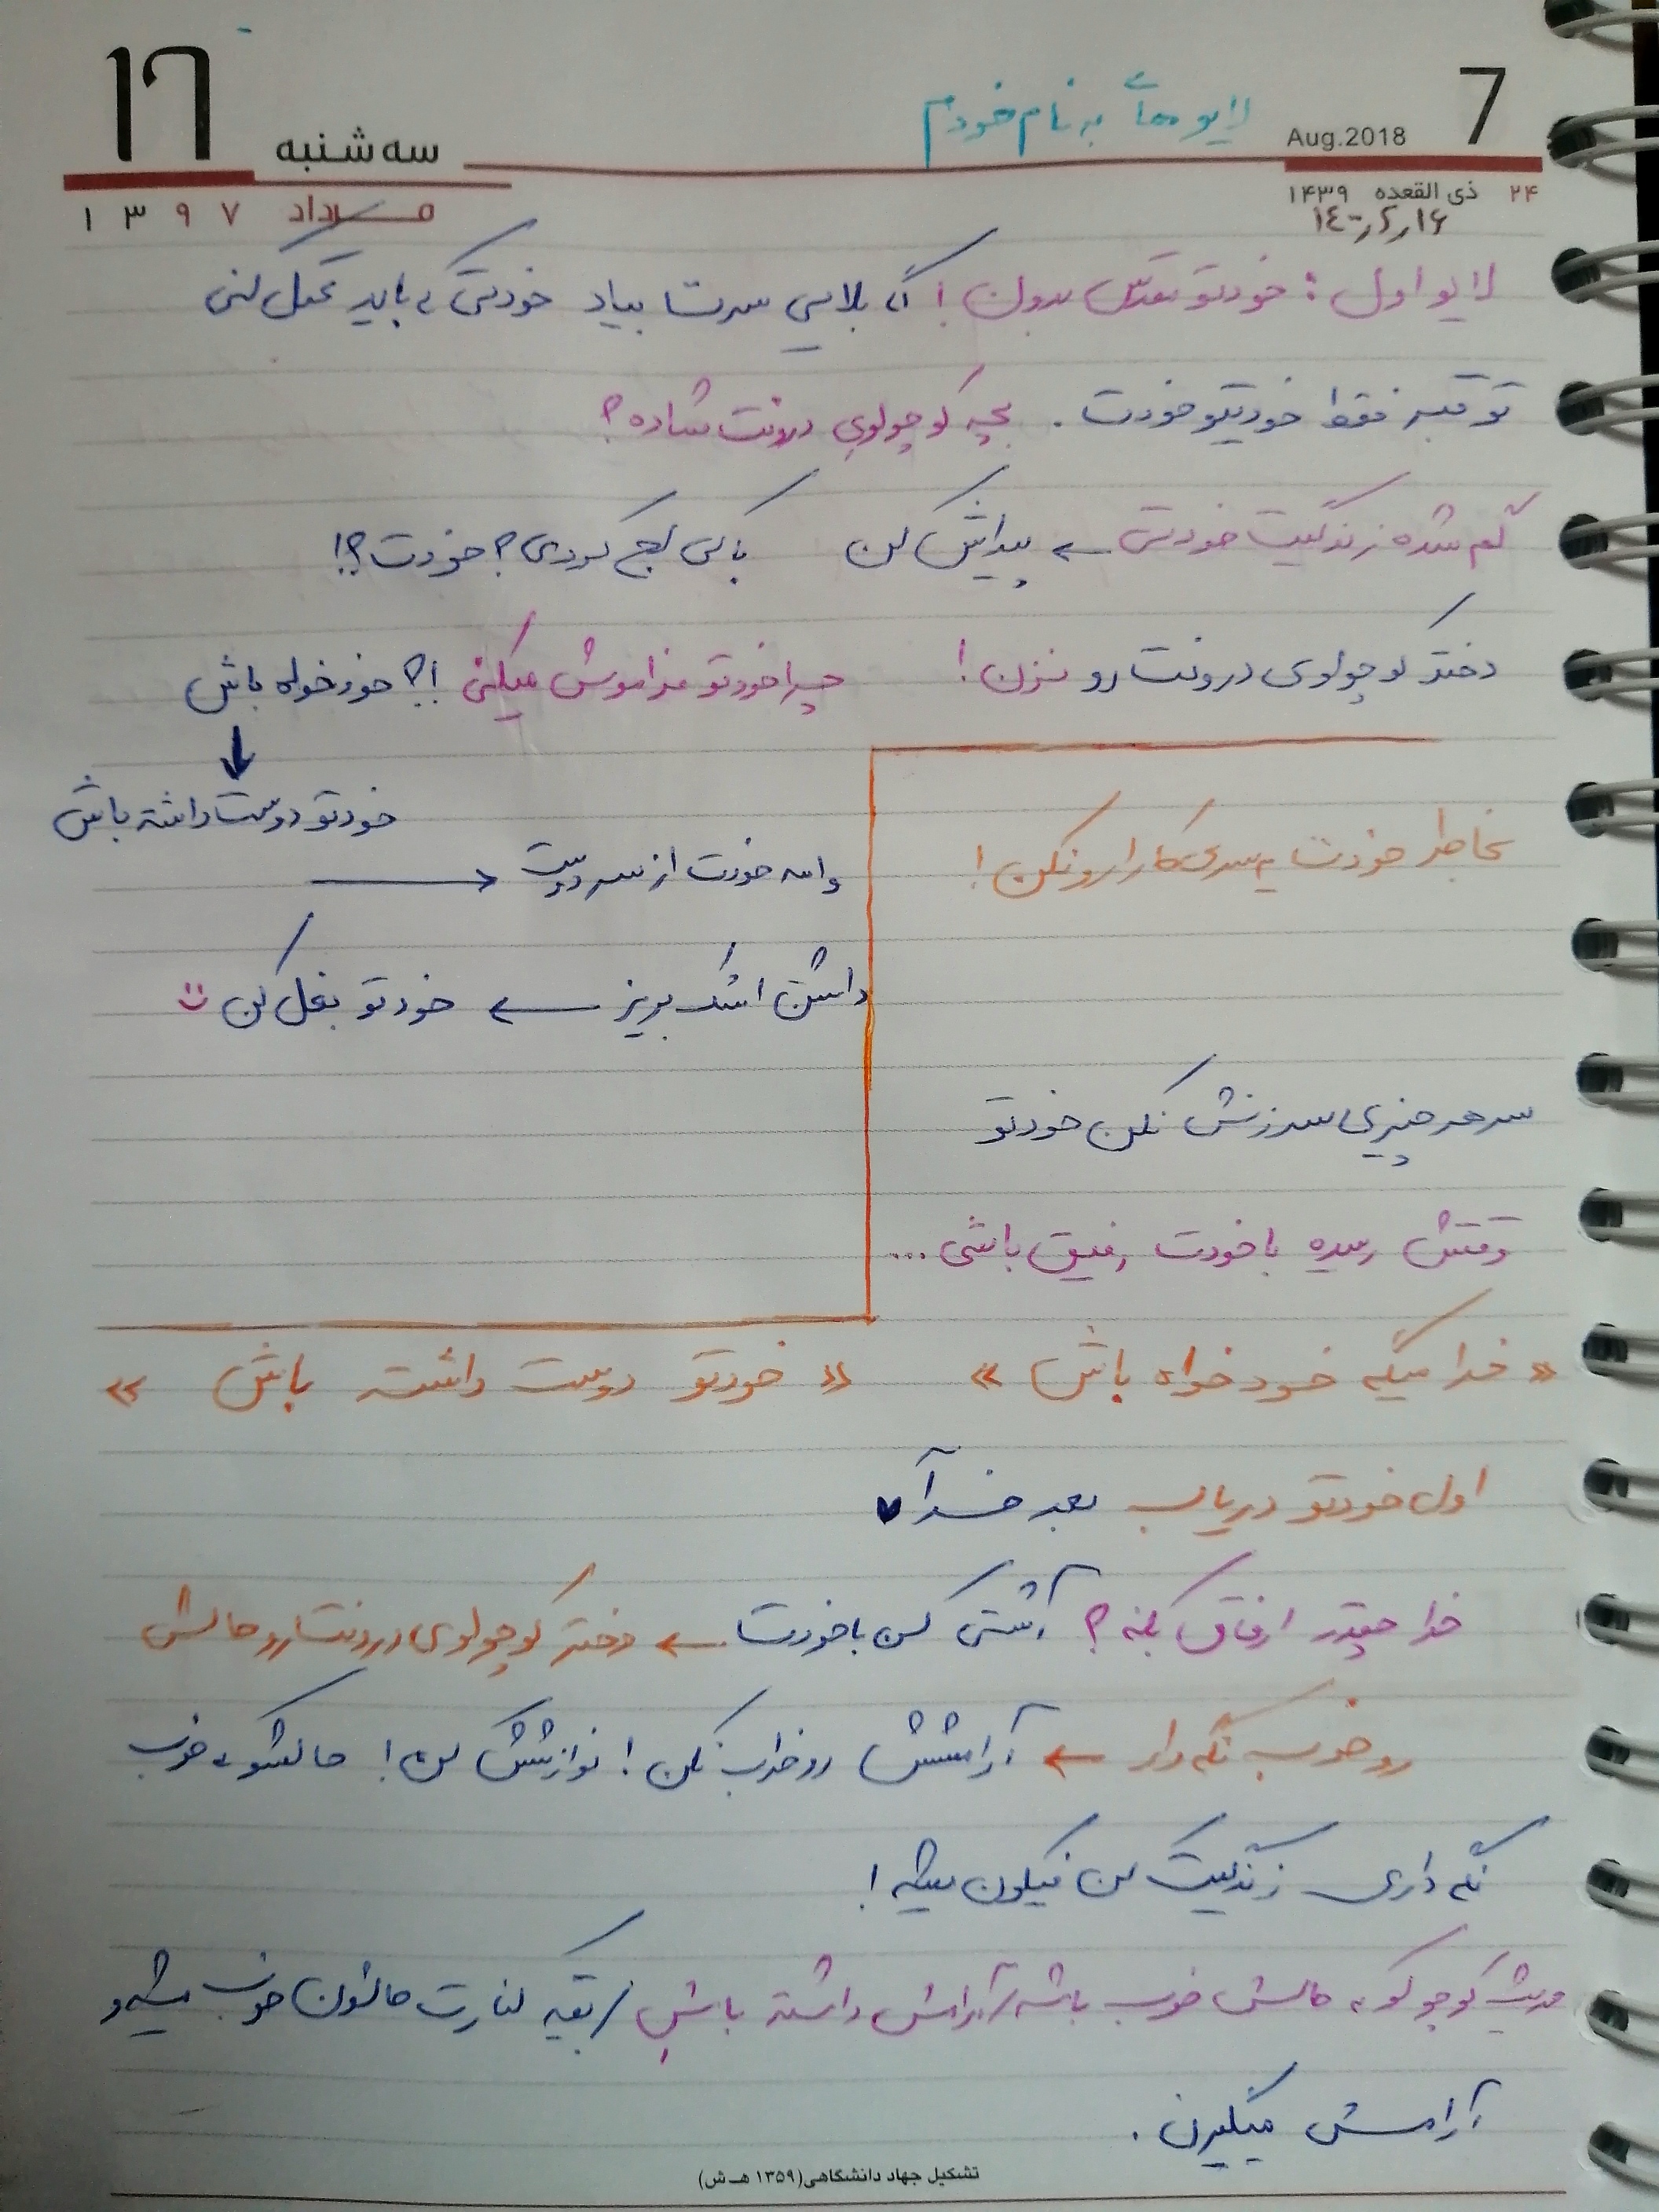 7 Aug.2018
۱۶ سه شنبه
لایو هایی به نام خودم
۲۴ ذی القعده ۱۴۳۹
مرداد ۱۳۹۷
۱۴۰۰/۲/۱۶
لایو اول : خودتو مقدس بدون ! اگه بلایی سرت بیاد خودتی که باید تحمل کنی
تو قبر فقط خودتیو خودت . بچه کوچولوی درونت شاده ؟
گم شده زندگیت خودتی ← پیداش کن با کی لج کردی ؟ خودت ؟!
دختر کوچولوی درونت رو نزن ! چرا خودتو فراموش میکنی !؟ خودخواه باش
↓
خودتو دوست داشته باش
بخاطر خودت یه سری کارا رو نکن !
واسه خودت از سر دوست →
داشتن اشک بریز ← خودتو بغل کن
سر هر چیزی سرزنش نکن خودتو
وقتش رسیده با خودت رفیق باشی ...
« خدا میگه خود خواه باش » « خودتو دوست داشته باش »
اول خودتو دریاب بعد خدا ♥
خدا چقدر ارفاق کنه ؟ آشتی کن با خودت ← دختر کوچولوی درونت رو حالش
رو خوب نگه دار ← آرامشش رو خراب نکن ! نوازشش کن ! حالشو که خوب
نگه داری زندگیت کن فیکون میشه !
کوچولو که حالش خوب باشه / آرامش داشته باشی / بقیه کنارت حالشون خوب میشه و
آرامش میگیرن .
تشکیل جهاد دانشگاهی (۱۳۵۹ هـ ش)